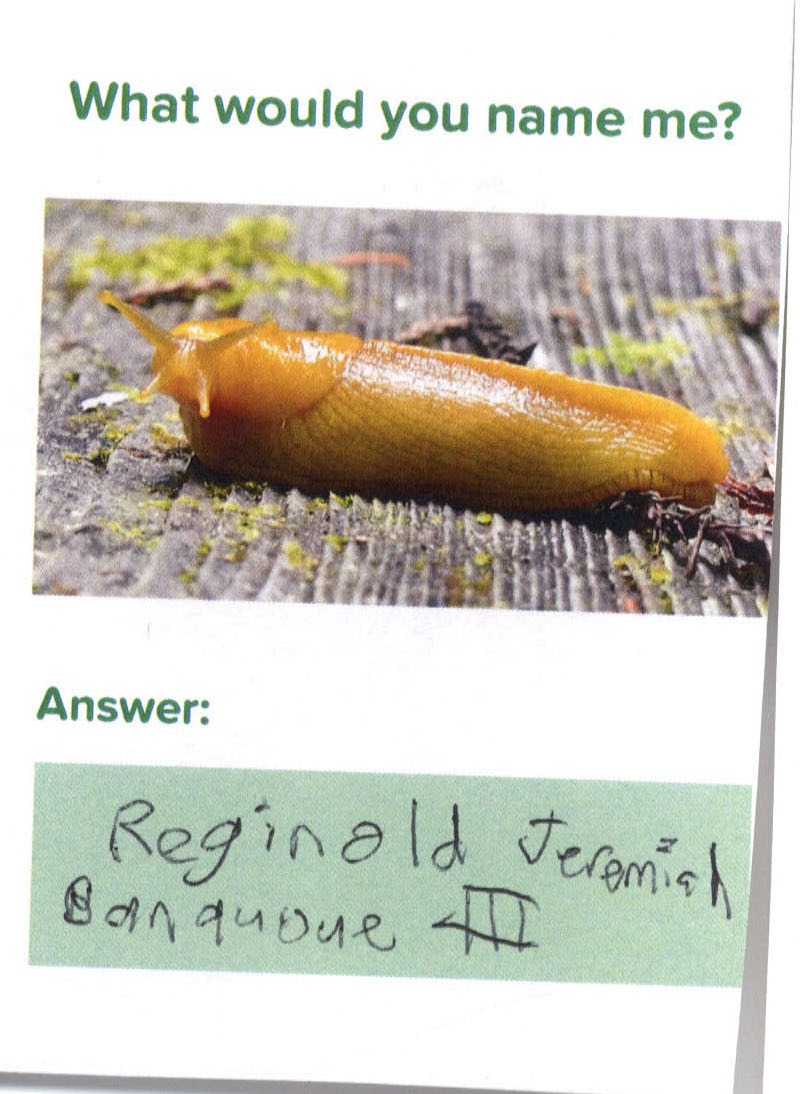 What would you name me?
Answer:
Reginald Jeremiah
Banquoue III